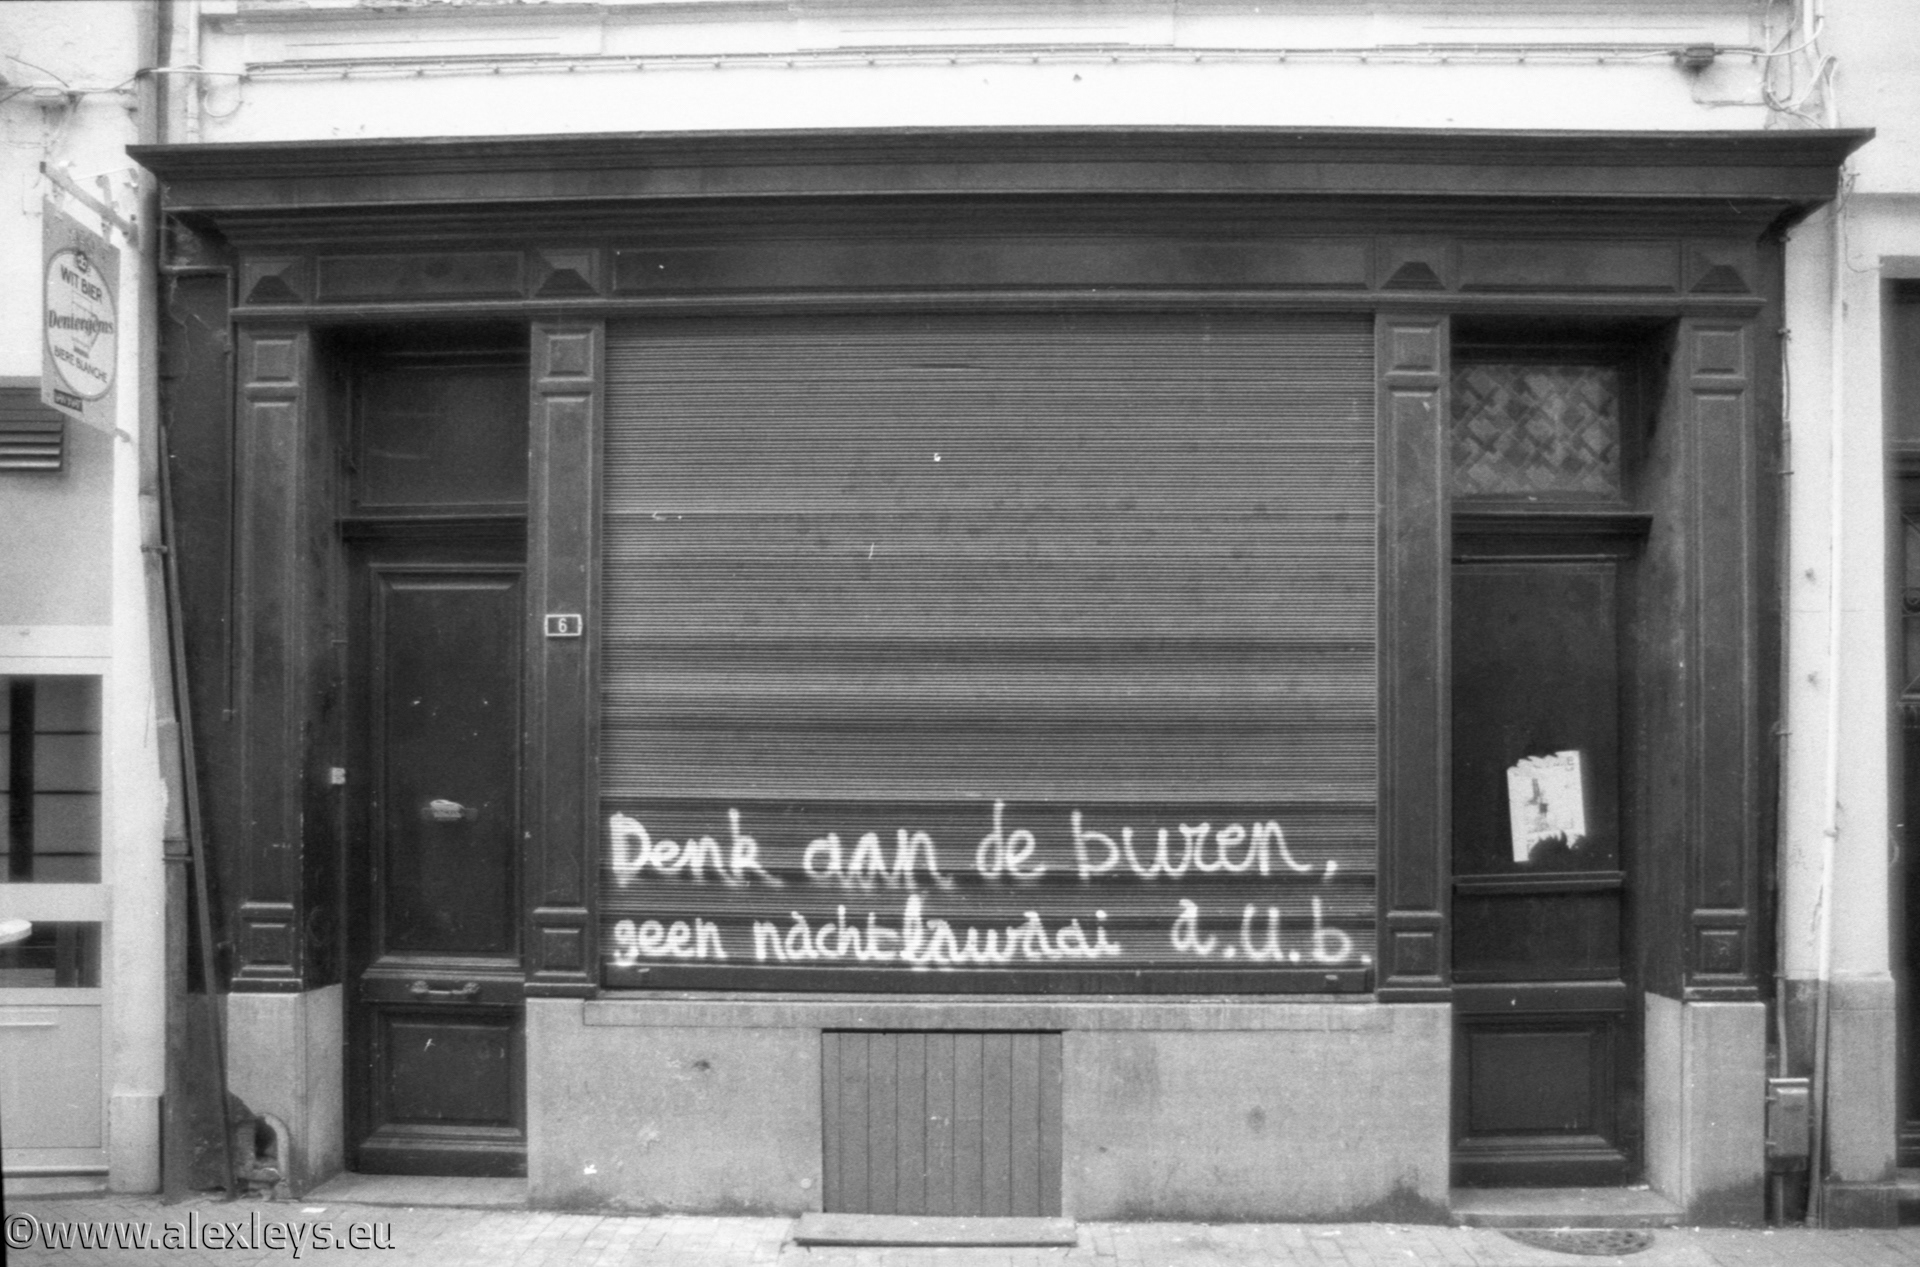 WIT BIER
Dentergems
BIERE BLANCHE
6
Denk aan de buren,
geen nachtlawaai a.u.b.
©www.alexleys.eu